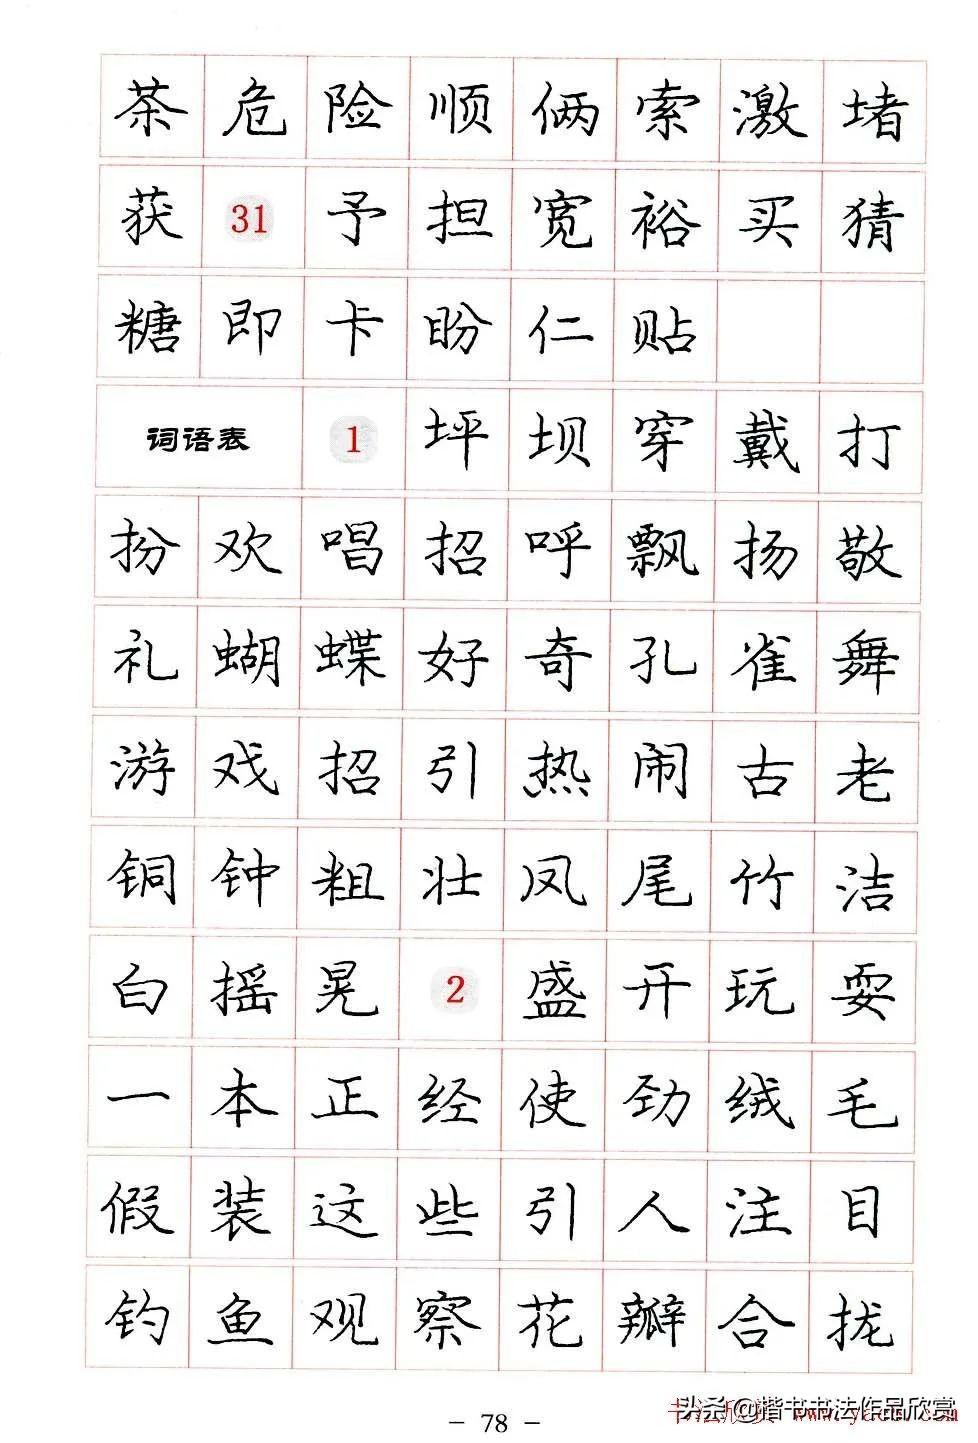 茶危险顺俩索激堵
获 31 予担宽裕买猜
糖即卡盼仁贴
词语表 1 坪坝穿戴打
扮欢唱招呼飘扬敬
礼蝴蝶好奇孔雀舞
游戏招引热闹古老
铜钟粗壮凤尾竹洁
白摇晃 2 盛开玩耍
一本正经使劲绒毛
假装这些引人注目
钓鱼观察花瓣合拢
- 78 -
头条@楷书书法作品欣赏